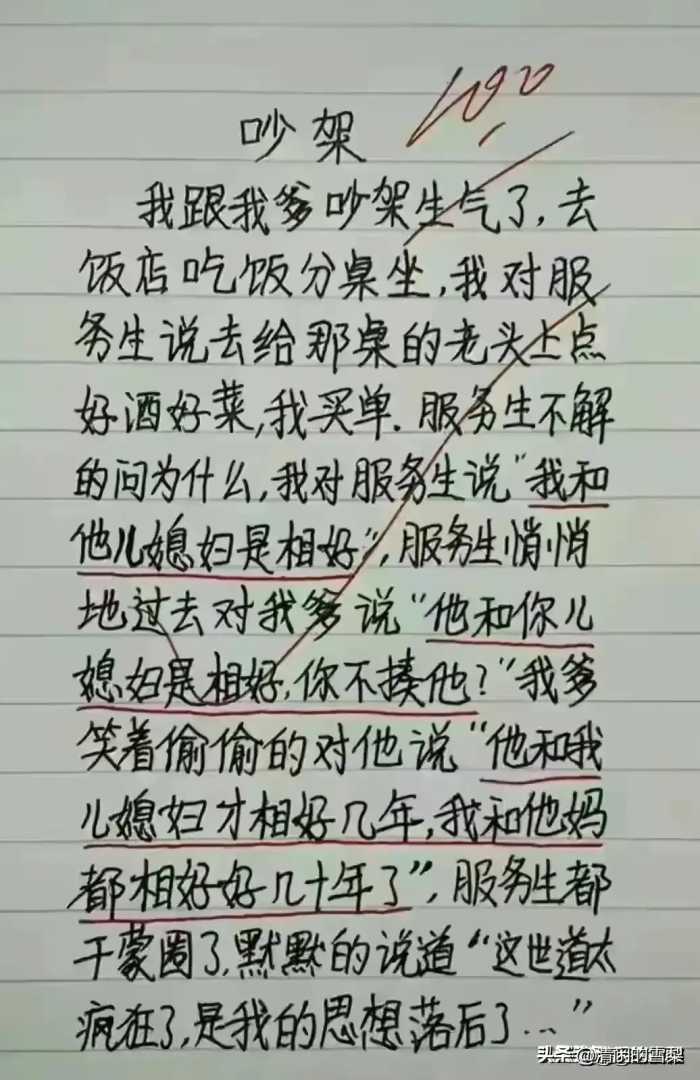 100
吵架
我跟我爹吵架生气了,去
饭店吃饭分桌坐,我对服
务生说去给那桌的老头上点
好酒好菜,我买单.服务生不解
的问为什么,我对服务生说"我和
他儿媳妇是相好",服务生悄悄
地过去对我爹说"他和你儿
媳妇是相好,你不揍他?"我爹
笑着偷偷的对他说"他和我
儿媳妇才相好几年,我和他妈
都相好好几十年了",服务生都
干蒙圈了,默默的说道"这世道太
疯狂了,是我的思想落后了..."
头条 @清闲的雪梨